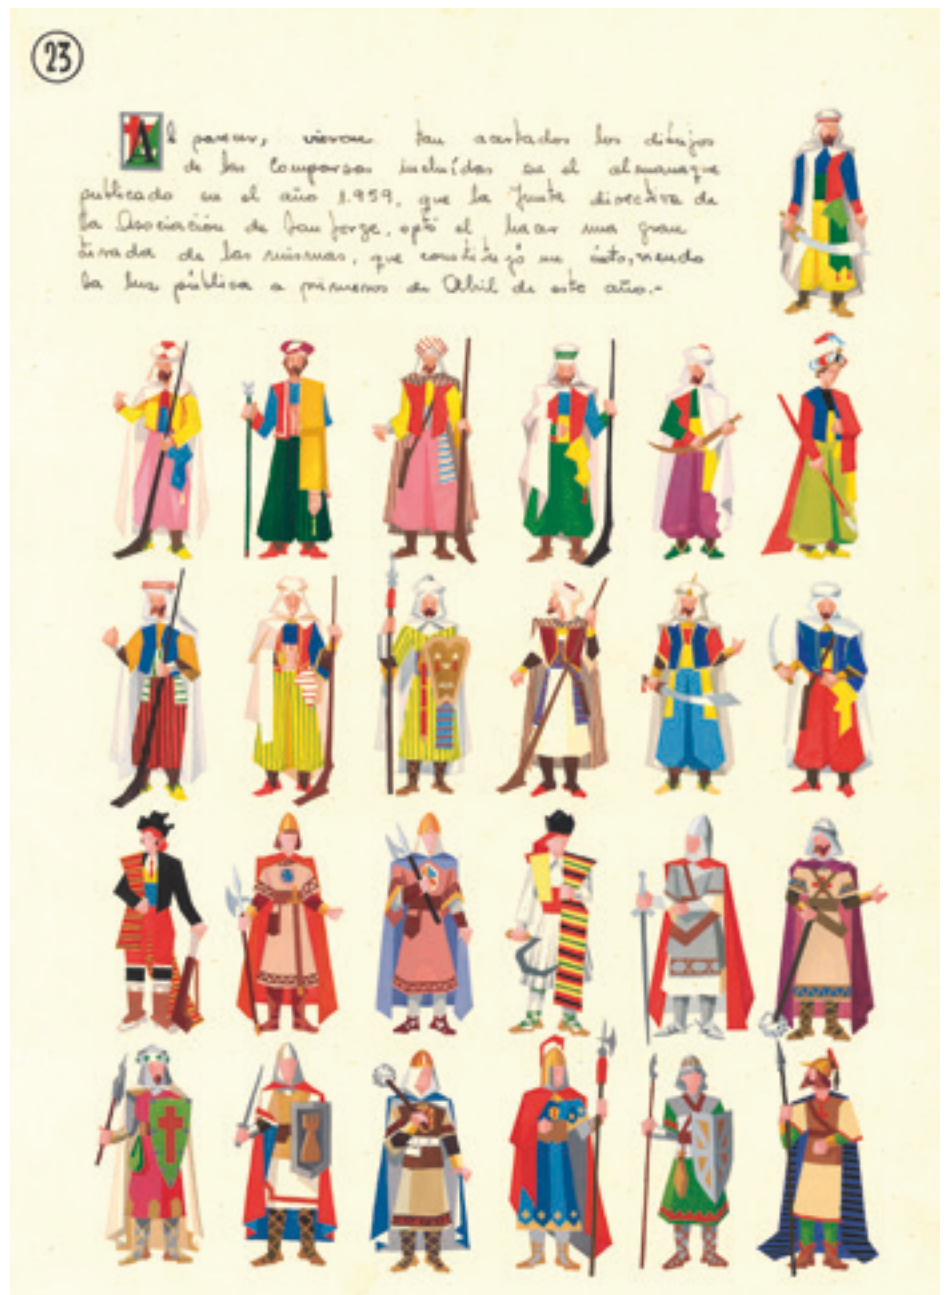 23
Al parecer, vieron tan acertados los dibujos
de las Comparsas incluídas en el almanaque
publicado en el año 1.959, que la Junta directiva de
la Asociación de San Jorge, optó el hacer una gran
tirada de las mismas, que constituyó un éxito, viendo
la luz pública a primeros de Abril de este año.-